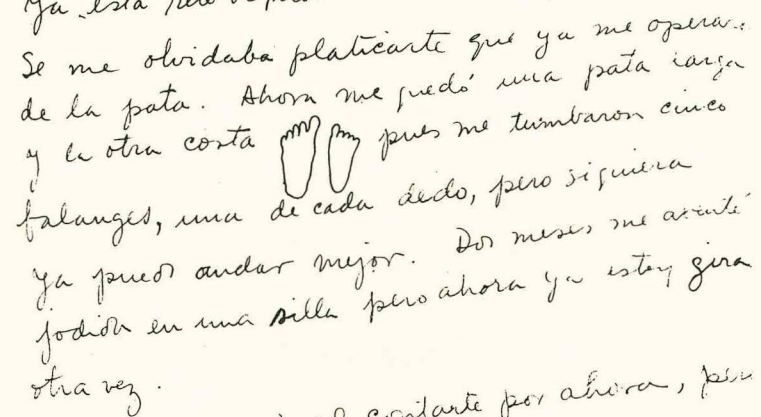 Ya está
Se me olvidaba platicarte que ya me opera..
de la pata. Ahora me quedó una pata larga
y la otra costa pues me tumbaron cinco
falanges, una de cada dedo, pero siquiera
ya puedo andar mejor. Dos meses me
jodida en una silla pero ahora ya estoy gira
otra vez.
contarte por ahora,